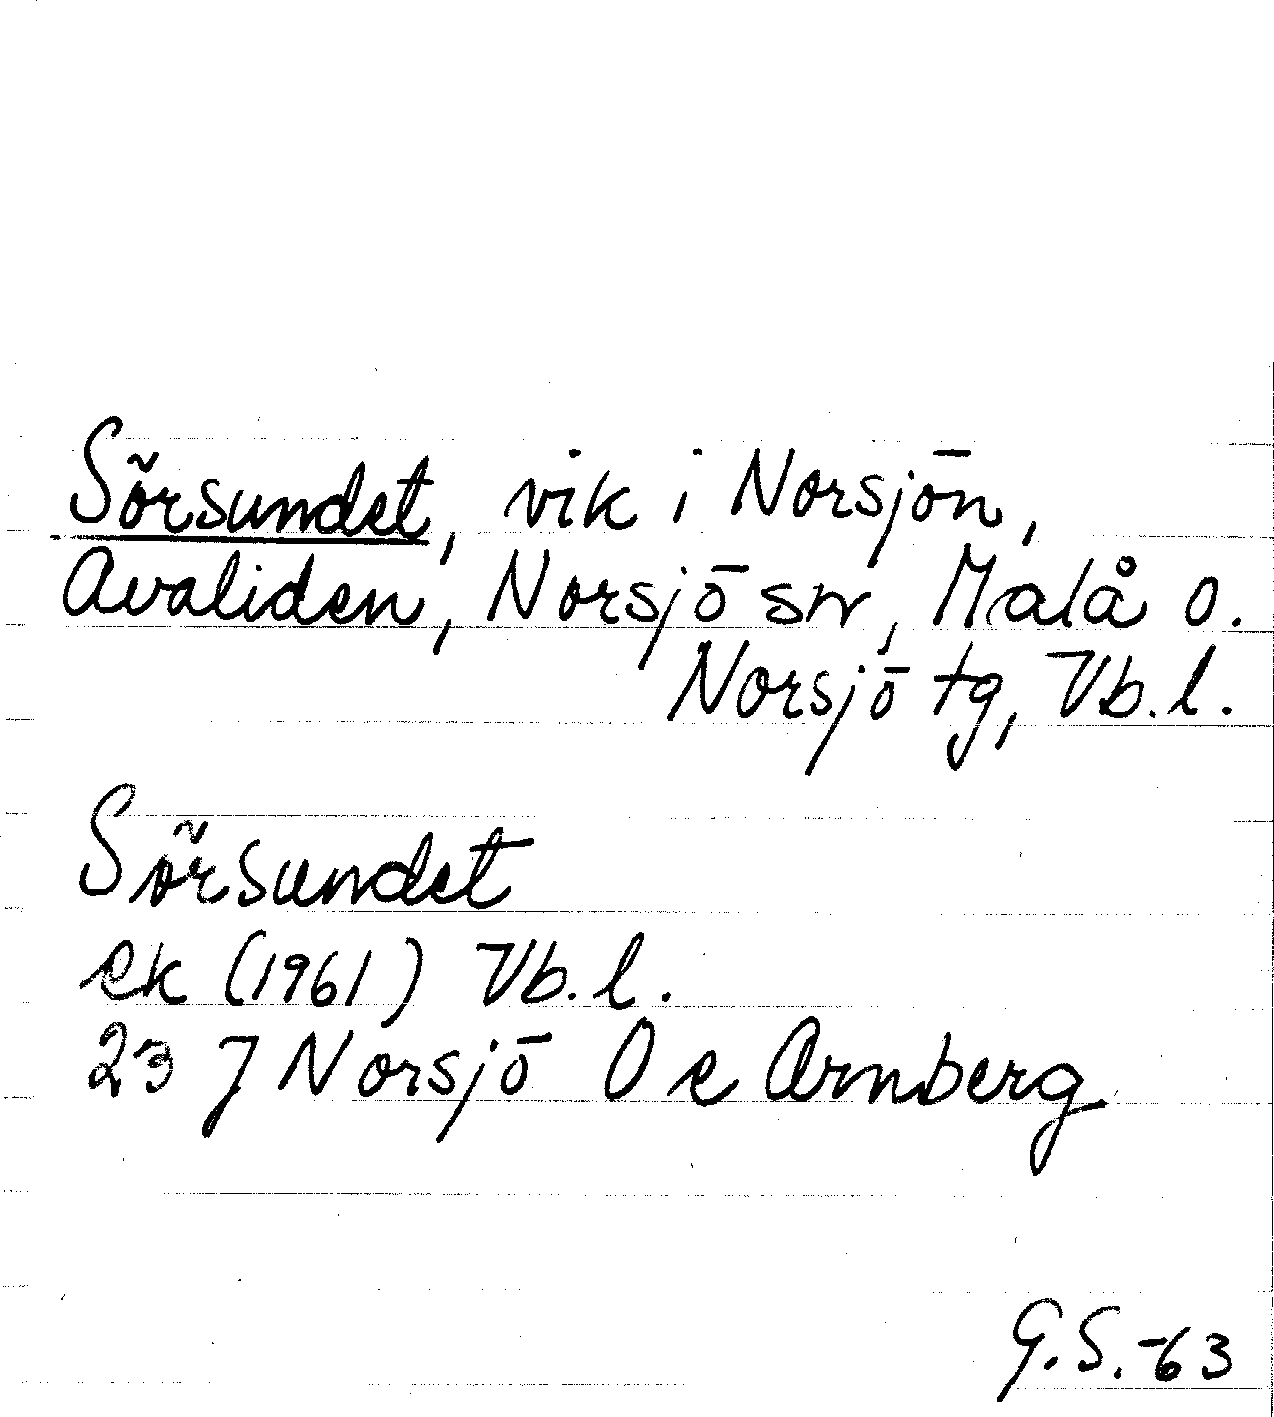 Sörsundet, vik i Norsjön,
Avaliden, Norsjö sn, Malå o.
Norsjö tg, Vb. l.
Sörsundet
ek (1961) Vb. l.
23 J Norsjö O e Arnberg
G. S. -63